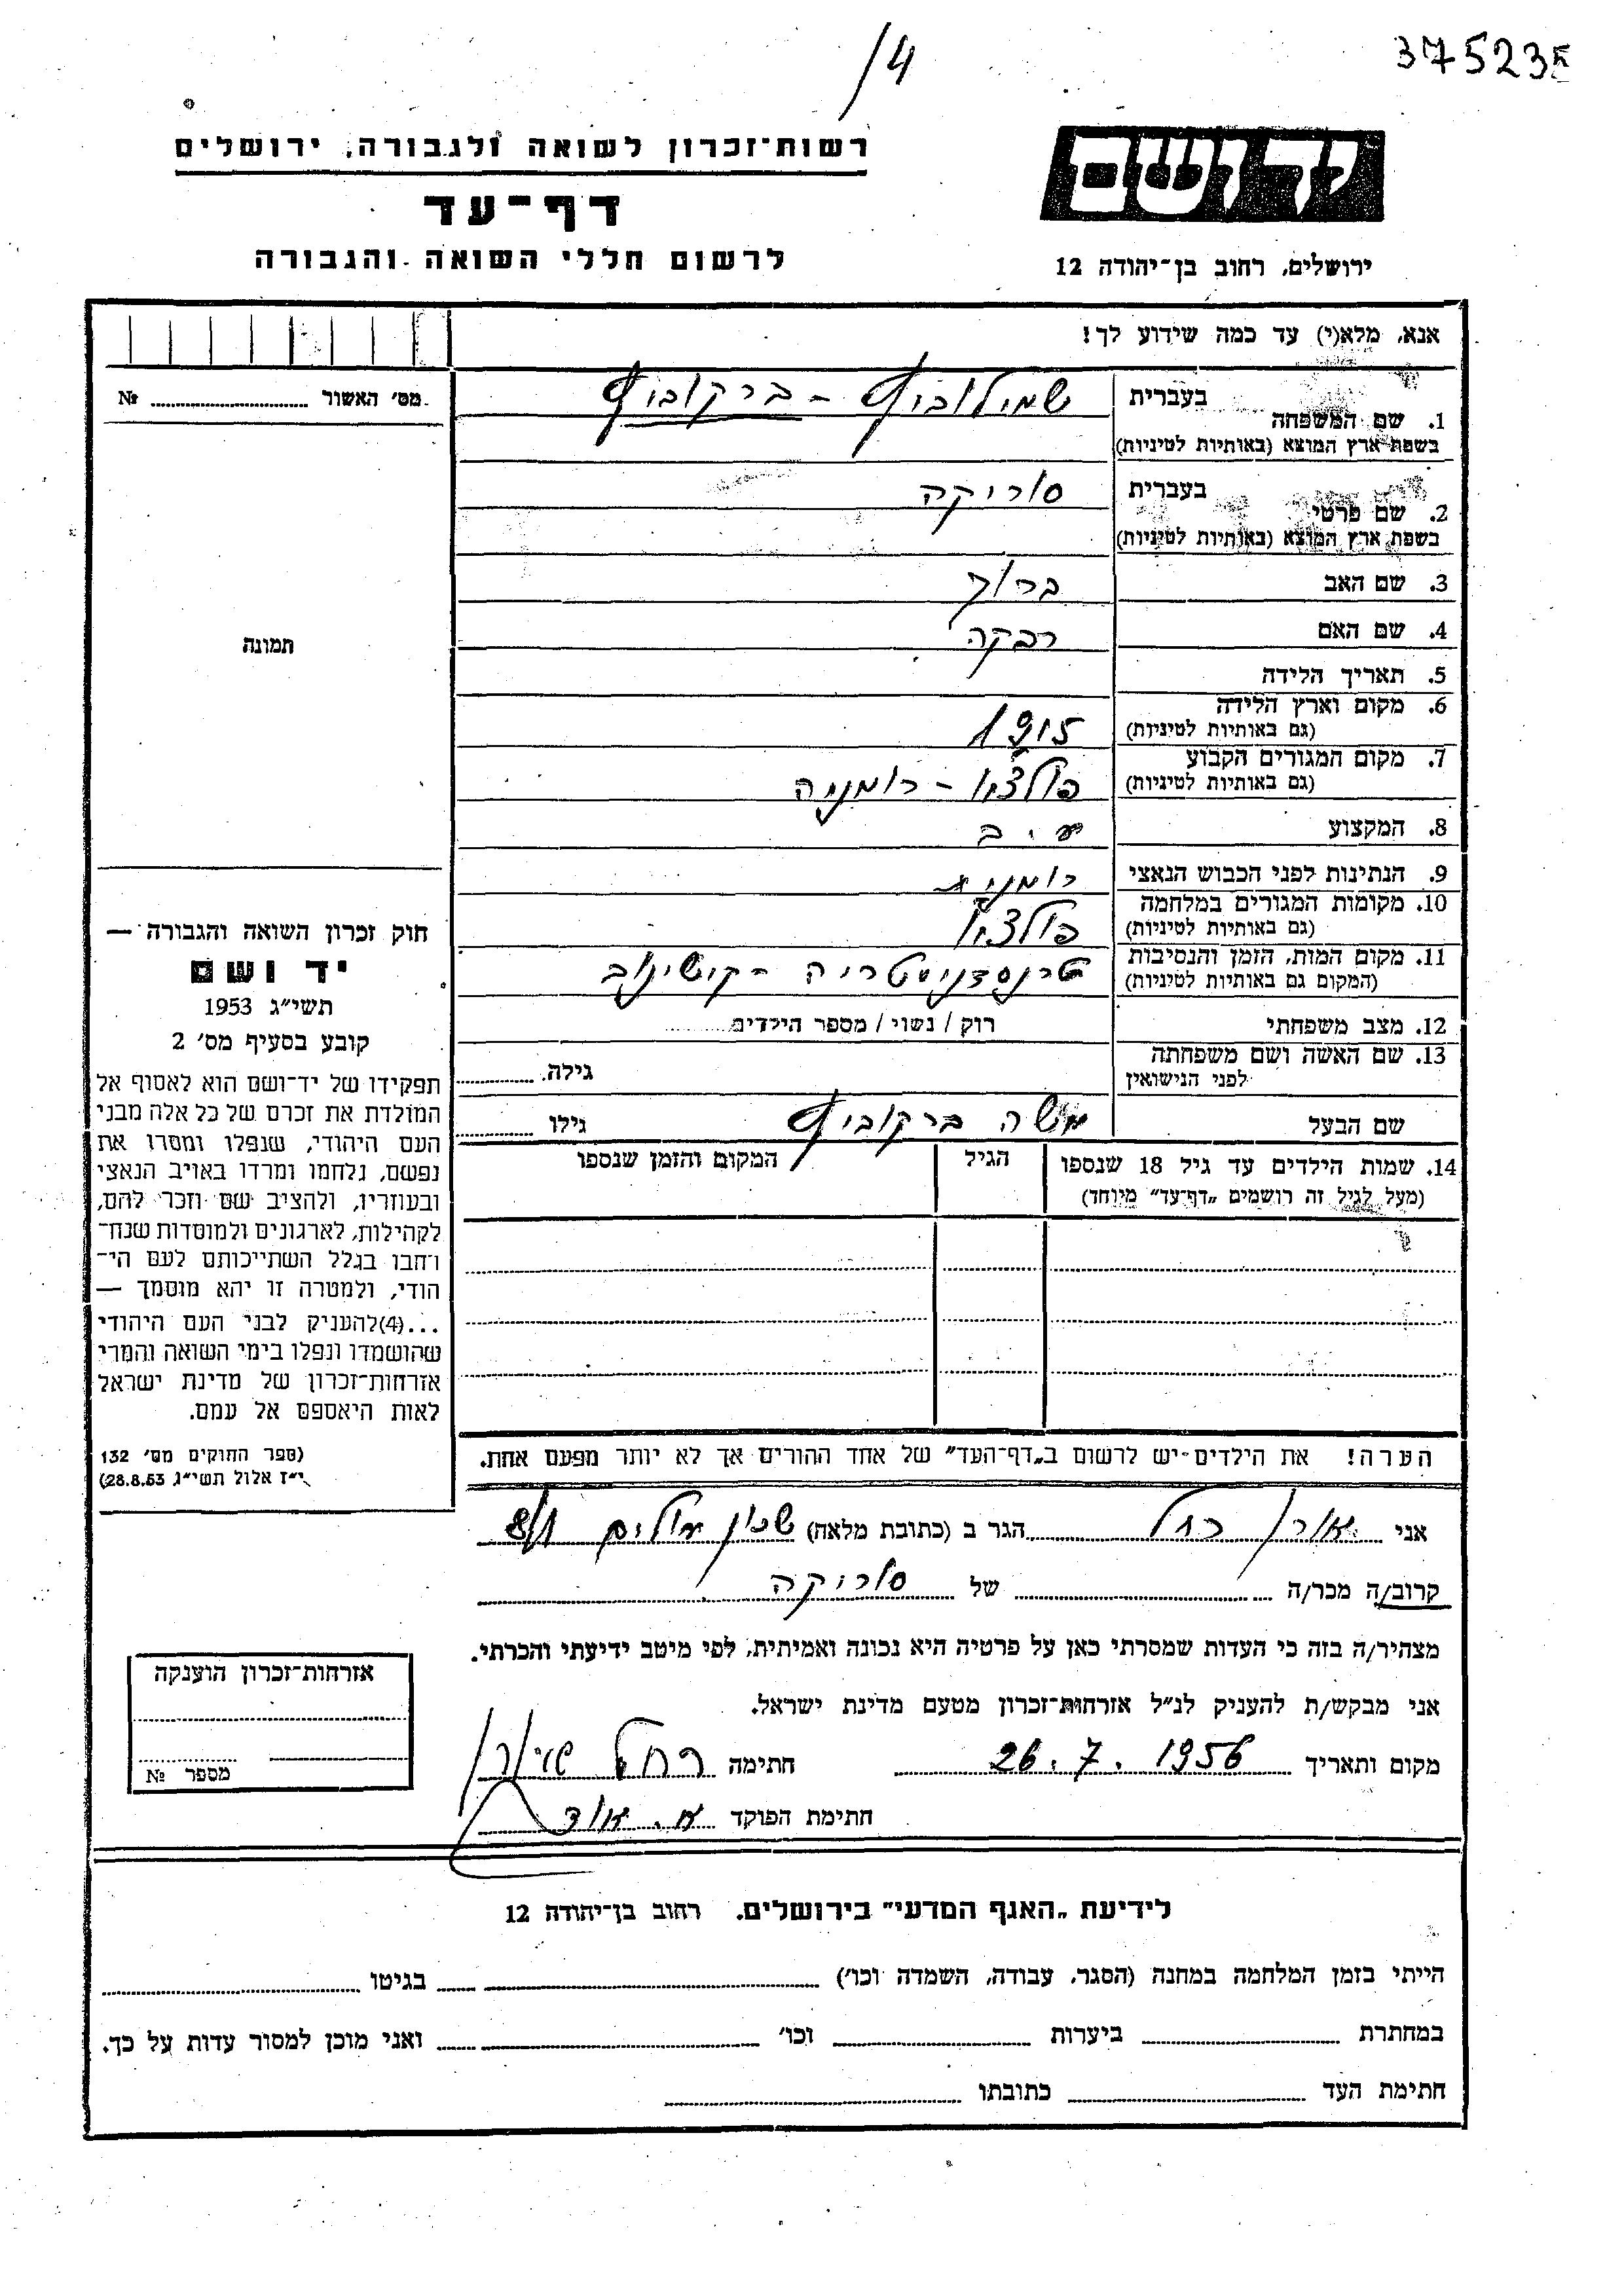 /4
375235
רשות־זכרון לשואה ולגבורה, ירושלים
דף־עד
לרשום חללי השואה והגבורה
יד ושם
ירושלים, רחוב בן־יהודה 12
אנא, מלא(י) עד כמה שידוע לך!
מס׳ האשור № 
1. שם המשפחה בעברית שמילוביץ - ברקוביץ
בשפת ארץ המוצא (באותיות לטיניות)
2. שם פרטי בעברית סוריקה
בשפת ארץ המוצא (באותיות לטיניות)
3. שם האב ברוך
4. שם האם רבקה
תמונה
5. תאריך הלידה
6. מקום וארץ הלידה
(גם באותיות לטיניות) 1915
7. מקום המגורים הקבוע
(גם באותיות לטיניות) פולצאו - רומניה
8. המקצוע
9. הנתינות לפני הכבוש הנאצי
10. מקומות המגורים במלחמה
(גם באותיות לטיניות)
11. מקום המות, הזמן והנסיבות טרנסדניסטריה - קושינוב
(המקום גם באותיות לטיניות)
12. מצב משפחתי רוק / נשוי / מספר הילדים
13. שם האשה ושם משפחתה
לפני הנישואין גילה
שם הבעל משה ברקוביץ גילו
14. שמות הילדים עד גיל 18 שנספו הגיל המקום והזמן שנספו
(מעל לגיל זה רושמים „דף־עד” מיוחד)
חוק זכרון השואה והגבורה —
יד ושם
תשי״ג 1953
קובע בסעיף מס׳ 2
תפקידו של יד־ושם הוא לאסוף אל
המולדת את זכרם של כל אלה מבני
העם היהודי, שנפלו ומסרו את
נפשם, נלחמו ומרדו באויב הנאצי
ובעוזריו, ולהציב שם וזכר להם,
לקהילות, לארגונים ולמוסדות שנח־
רבו בגלל השתייכותם לעם הי־
הודי, ולמטרה זו יהא מוסמך —
...(4)להעניק לבני העם היהודי
שהושמדו ונפלו בימי השואה והמרי
אזרחות־זכרון של מדינת ישראל
לאות היאספם אל עמם.
(ספר החוקים מס׳ 132
י״ז אלול תשי״ג 28.8.53)
הערה! את הילדים יש לרשום ב„דף־העד” של אחד ההורים אך לא יותר מפעם אחת.
אני רחל הגר ב (כתובת מלאה) שכון עולים
קרוב/ה מכר/ה של סוריקה
מצהיר/ה בזה כי העדות שמסרתי כאן על פרטיה היא נכונה ואמיתית, לפי מיטב ידיעתי והכרתי.
אני מבקש/ת להעניק לנ״ל אזרחות־זכרון מטעם מדינת ישראל.
מקום ותאריך 26.7.1956 חתימה רחל
חתימת הפוקד
אזרחות־זכרון הוענקה
מספר №
לידיעת „האגף המדעי” בירושלים. רחוב בן־יהודה 12
הייתי בזמן המלחמה במחנה (הסגר, עבודה, השמדה וכו׳) בגיטו
במחתרת ביערות וכו׳ ואני מוכן למסור עדות על כך.
חתימת העד כתובתו